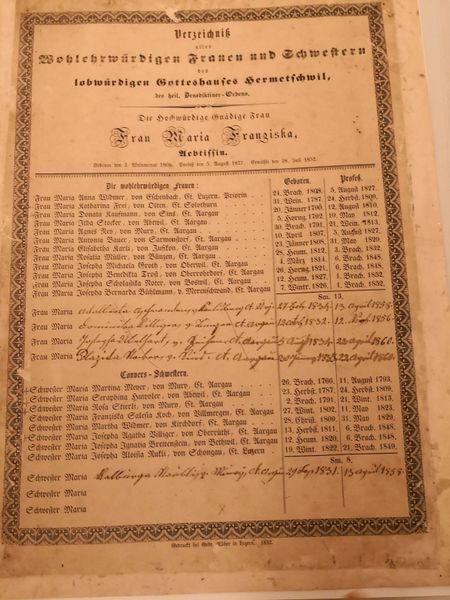 Verzeichniß
aller
Wohlehrwürdigen Frauen und Schwestern
des
lobwürdigen Gotteshauses Hermetschwil,
des heil. Benediktiner-Ordens.
Die Hochwürdige Gnädige Frau
Frau Maria Franziska,
Aebtissin.
Geboren den 2. 1808. Profess den 5. August 1827. Erwählt den 28. Juli 1852.
Die wohlehrwürdigen Frauen: Geboren. Profeß.
Frau Maria Anna Widmer, von Eschenbach, Ct. Luzern. Priorin 24. Brach. 1808. 5. August 1827.
Frau Maria Katharina Frei, von Olten, Ct. Solothurn 31. Wein. 1787. 24. Herbst. 1809.
Frau Maria Donata Kaufmann, von Ct. Aargau 20. Jänner 1790. 12. August 1810.
Frau Maria Idda Stocker, von Abtwil, Ct. Aargau 5. Horng. 1792. 10. May 1812.
Frau Maria Agnes Rey, von Mury, Ct. Aargau 30. Brach. 1791. 21. Wein. 1813.
Frau Maria Antonia Baur, von Sarmenstorf, Ct. Aargau 10. April 1807. 5. August 1827.
Frau Maria Elisabetha Karli, von Ct. Aargau 23. Jänner 1808. 31. May 1829.
Frau Maria Rosalia Müller, von Bünzen, Ct. Aargau 28. Heum. 1812. 3. Brach. 1832.
Frau Maria Josepha Michaela Groth, von Oberwil, Ct. Aargau 4. März 1814. 6. Brach. 1848.
Frau Maria Josepha Benedikta Trost, von Oberrohrdorf, Ct. Aargau 26. Horng. 1821. 6. Brach. 1848.
Frau Maria Josepha Scholastika Noter, von Boswil, Ct. Aargau 12. Heum. 1827. 1. Brach. 1852.
Frau Maria Josepha Bernarda Bühlmann, v. Merenschwand, Ct. Aargau 7. Wint. 1826. 1. Brach. 1852.
Sm. 13.
Frau Maria 13 April 1858.
Frau Maria Dominika 1832. 1856
Frau Maria Josepha 1860.
Frau Maria Plazida 1860.
Convers-Schwestern.
Schwester Maria Martina Meyer, von Mury, Ct. Aargau 26. Brach. 1766. 11. August 1793.
Schwester Maria Seraphina Huwyler, von Abtwil, Ct. Aargau 23. Herbst. 1787. 24. Herbst. 1809.
Schwester Maria Rosa Stierli, von Mury, Ct. Aargau 2. Brach. 1791. 21. Wint. 1813.
Schwester Maria Franziska Salesia Koch, von Villmergen, Ct. Aargau 27. Wint. 1802. 11. May 1823.
Schwester Maria Martha Widmer, von Kirchdorf, Ct. Aargau 28. Christ. 1800. 31. May 1829.
Schwester Maria Josepha Agatha Villiger, von Oberrüti, Ct. Aargau 13. Herbst. 1811. 6. Brach. 1848.
Schwester Maria Josepha Ignatia Brunstein, von Bettwil, Ct. Aargau 12. Heum. 1820. 6. Brach. 1848.
Schwester Maria Josepha Aloisia Rufli, von Schongau, Ct. Luzern 19. Wint. 1822. 21. Brach. 1849.
Sm. 8.
Schwester Maria Walburga 1831. 13 April 1858.
Schwester Maria
Schwester Maria
Gedruckt bei Gebr. Räber in Luzern. 1852.